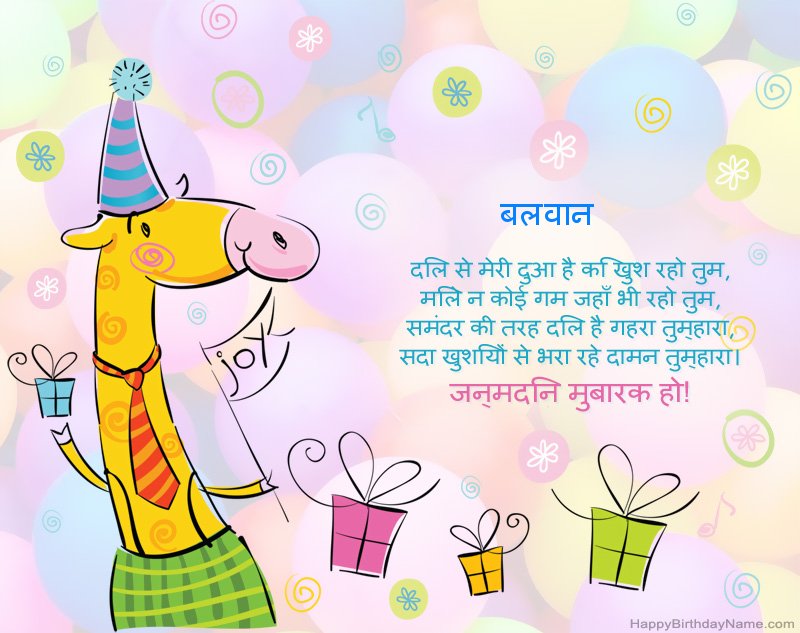 बलवान
दलि से मेरी दुआ है क िखुश रहो तुम,
मलिे न कोई गम जहाँ भी रहो तुम,
समंदर की तरह दलि है गहरा तुम्हारा,
सदा खुशयिों से भरा रहे दामन तुम्हारा।
जन्मदनि मुबारक हो!
joy
HappyBirthdayName.com